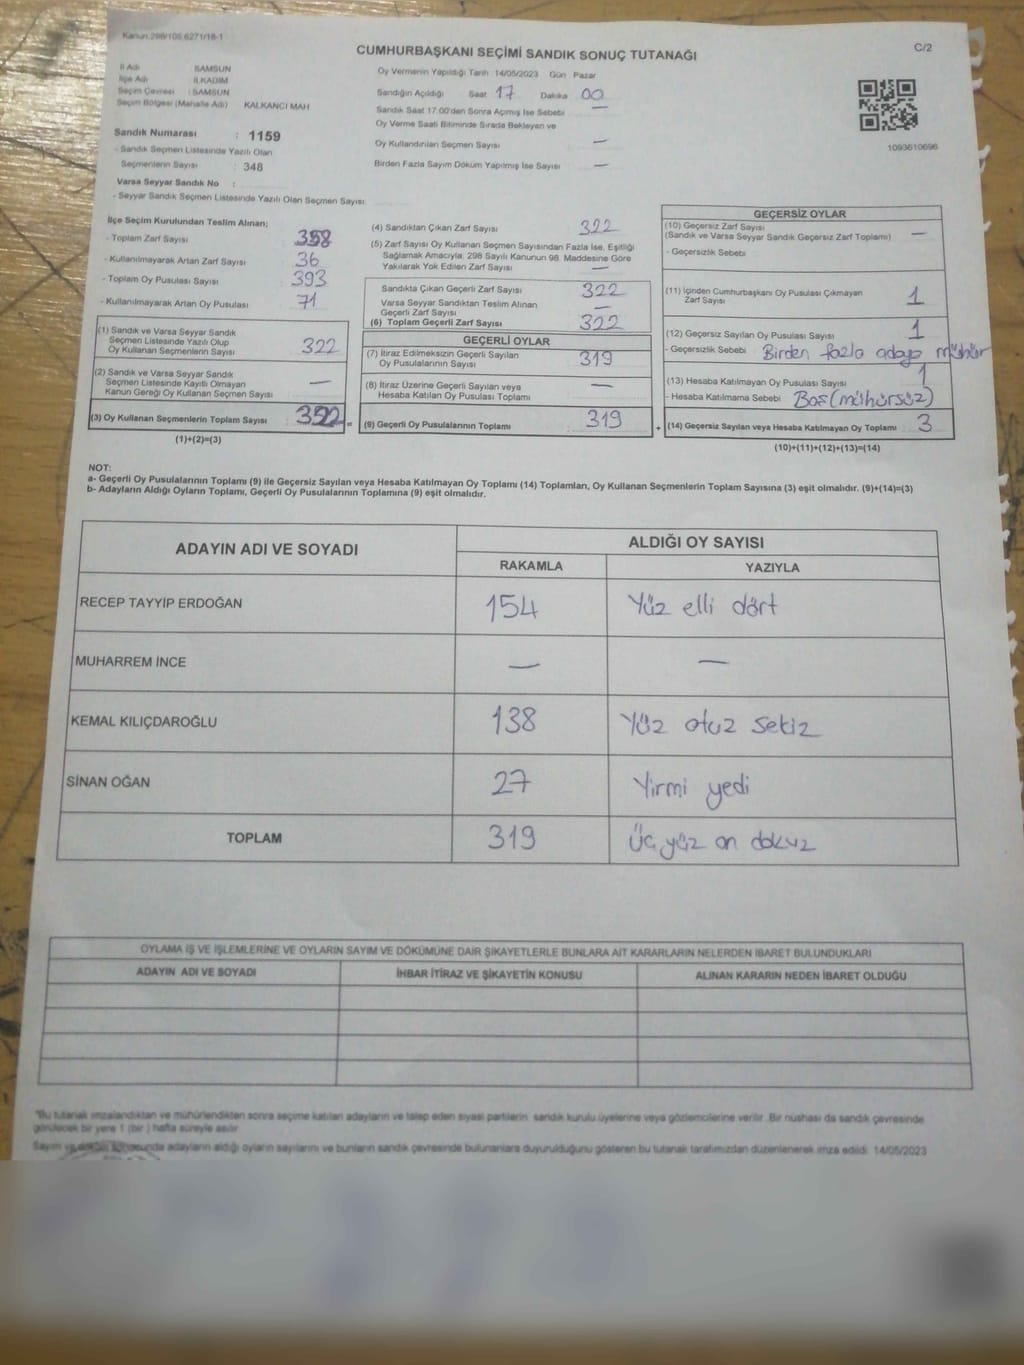 Kanun.298/105.6271/18-1
CUMHURBAŞKANI SEÇİMİ SANDIK SONUÇ TUTANAĞI
C/2
İl Adı : SAMSUN
İlçe Adı : İLKADIM
Seçim Çevresi : SAMSUN
Seçim Bölgesi (Mahalle Adı) KALKANCI MAH
Sandık Numarası : 1159
- Sandık Seçmen Listesinde Yazılı Olan
Seçmenlerin Sayısı : 348
Varsa Seyyar Sandık No :
- Seyyar Sandık Seçmen Listesinde Yazılı Olan Seçmen Sayısı:
Oy Vermenin Yapıldığı Tarih 14/05/2023 Gün Pazar
Sandığın Açıldığı Saat 17 Dakika 00
Sandık Saat 17:00'den Sonra Açımış İse Sebebi —
Oy Verme Saati Bitiminde Sırada Bekleyen ve
Oy Kullandırılan Seçmen Sayısı —
Birden Fazla Sayım Döküm Yapılmış İse Sayısı —
1093610696
İlçe Seçim Kurulundan Teslim Alınan;
- Toplam Zarf Sayısı 358
- Kullanılmayarak Artan Zarf Sayısı 36
- Toplam Oy Pusulası Sayısı 393
- Kullanılmayarak Artan Oy Pusulası 71
(1) Sandık ve Varsa Seyyar Sandık
Seçmen Listesinde Yazılı Olup
Oy Kullanan Seçmenlerin Sayısı 322
(2) Sandık ve Varsa Seyyar Sandık
Seçmen Listesinde Kayıtlı Olmayan
Kanun Gereği Oy Kullanan Seçmen Sayısı —
(3) Oy Kullanan Seçmenlerin Toplam Sayısı 322 =
(1)+(2)=(3)
(4) Sandıktan Çıkan Zarf Sayısı 322
(5) Zarf Sayısı Oy Kullanan Seçmen Sayısından Fazla İse, Eşitliği
Sağlamak Amacıyla, 298 Sayılı Kanunun 98. Maddesine Göre
Yakılarak Yok Edilen Zarf Sayısı —
Sandıkta Çıkan Geçerli Zarf Sayısı 322
Varsa Seyyar Sandıktan Teslim Alınan
Geçerli Zarf Sayısı —
(6) Toplam Geçerli Zarf Sayısı 322
GEÇERLİ OYLAR
(7) İtiraz Edilmeksizin Geçerli Sayılan
Oy Pusulalarının Sayısı 319
(8) İtiraz Üzerine Geçerli Sayılan veya
Hesaba Katılan Oy Pusulası Toplamı —
(9) Geçerli Oy Pusulalarının Toplamı 319 +
GEÇERSİZ OYLAR
(10) Geçersiz Zarf Sayısı
(Sandık ve Varsa Seyyar Sandık Geçersiz Zarf Toplamı) —
- Geçersizlik Sebebi
(11) İçinden Cumhurbaşkanı Oy Pusulası Çıkmayan
Zarf Sayısı 1
(12) Geçersiz Sayılan Oy Pusulası Sayısı 1
- Geçersizlik Sebebi Birden fazla adaya mühür
(13) Hesaba Katılmayan Oy Pusulası Sayısı 1
- Hesaba Katılmama Sebebi Boş (mühürsüz)
(14) Geçersiz Sayılan veya Hesaba Katılmayan Oy Toplamı 3
(10)+(11)+(12)+(13)=(14)
NOT:
a- Geçerli Oy Pusulalarının Toplamı (9) ile Geçersiz Sayılan veya Hesaba Katılmayan Oy Toplamı (14) Toplamları, Oy Kullanan Seçmenlerin Toplam Sayısına (3) eşit olmalıdır. (9)+(14)=(3)
b- Adayların Aldığı Oyların Toplamı, Geçerli Oy Pusulalarının Toplamına (9) eşit olmalıdır.
ADAYIN ADI VE SOYADI
ALDIĞI OY SAYISI
RAKAMLA YAZIYLA
RECEP TAYYİP ERDOĞAN 154 Yüz elli dört
MUHARREM İNCE — —
KEMAL KILIÇDAROĞLU 138 Yüz otuz sekiz
SİNAN OĞAN 27 Yirmi yedi
TOPLAM 319 Üç yüz on dokuz
OYLAMA İŞ VE İŞLEMLERİNE VE OYLARIN SAYIM VE DÖKÜMÜNE DAİR ŞİKAYETLERLE BUNLARA AİT KARARLARIN NELERDEN İBARET BULUNDUKLARI
ADAYIN ADI VE SOYADI İHBAR İTİRAZ VE ŞİKAYETİN KONUSU ALINAN KARARIN NEDEN İBARET OLDUĞU
*Bu tutanak imzalandıktan ve mühürlendikten sonra seçime katılan adayların ve talep eden siyasi partilerin sandık kurulu üyelerine veya gözlemcilerine verilir. Bir nüshası da sandık çevresinde
görülecek bir yere 1 (bir) hafta süreyle asılır
Sayım ve döküm sonucunda adayların aldığı oyların sayılarını ve bunların sandık çevresinde bulunanlara duyurulduğunu gösteren bu tutanak tarafımızdan düzenlenerek imza edildi. 14/05/2023